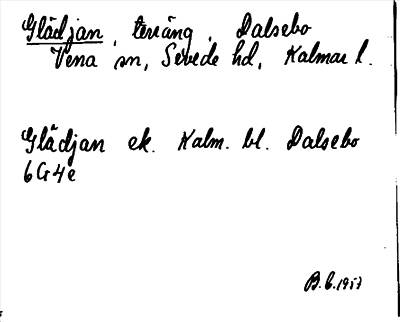 Glädjan, terräng, Dalsebo
Vena sn, Sevede hd, Kalmar l.
Glädjan ek. Kalm. bl. Dalsebo
6G4e
B.C. 1957